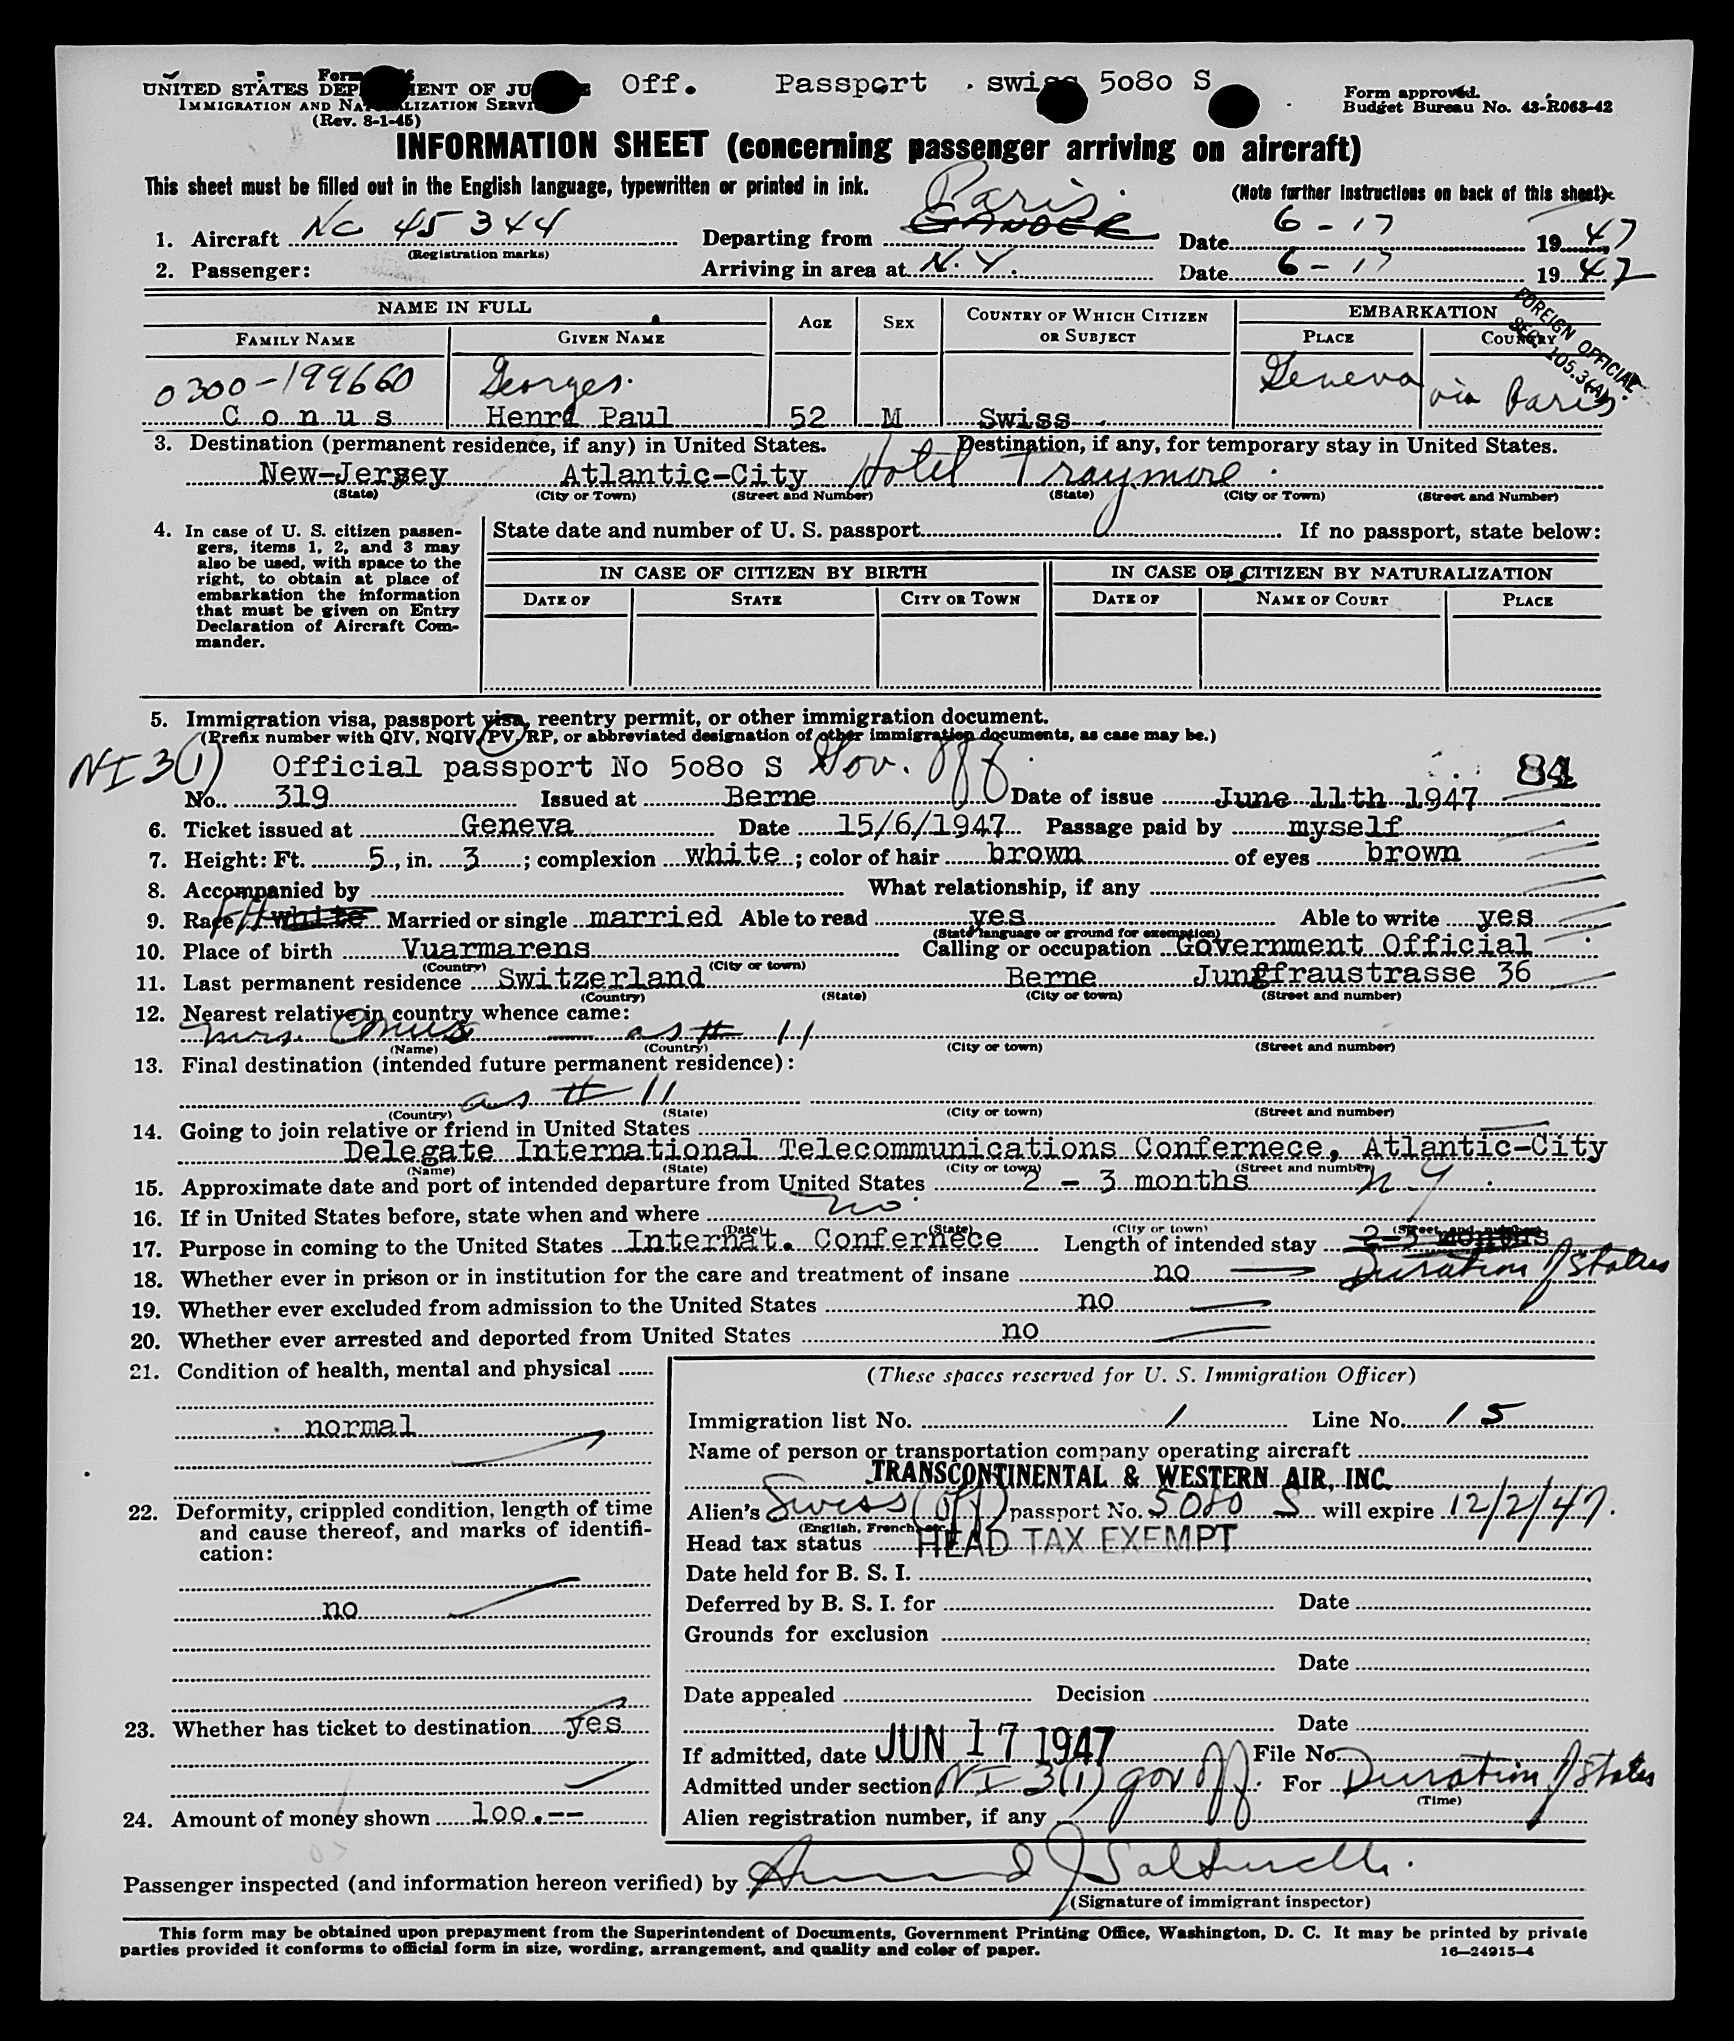 Off. Passport swiss 5080 S
UNITED STATES DEPARTMENT OF JUSTICE
IMMIGRATION AND NATURALIZATION SERVICE
(Rev. 8-1-45)
Form approved.
Budget Bureau No. 43-R063-42
INFORMATION SHEET (concerning passenger arriving on aircraft)
This sheet must be filled out in the English language, typewritten or printed in ink. (Note further instructions on back of this sheet)
Paris.
1. Aircraft NC 45344 Departing from GANDER Date 6-17 1947
(Registration marks)
2. Passenger: Arriving in area at N.Y. Date 6-17 1947
FOREIGN OFFICIAL
SEC. 105.3(A)
NAME IN FULL AGE SEX COUNTRY OF WHICH CITIZEN OR SUBJECT EMBARKATION
FAMILY NAME GIVEN NAME PLACE COUNTRY
0300-199660 Georges. Geneva via Paris.
Conus Henri Paul 52 M Swiss
3. Destination (permanent residence, if any) in United States. Destination, if any, for temporary stay in United States.
New-Jersey Atlantic-City Hotel Traymore
(State) (City or Town) (Street and Number) (State) (City or Town) (Street and Number)
4. In case of U. S. citizen passen-
gers, items 1, 2, and 3 may
also be used, with space to the
right, to obtain at place of
embarkation the information
that must be given on Entry
Declaration of Aircraft Com-
mander.
State date and number of U. S. passport If no passport, state below:
IN CASE OF CITIZEN BY BIRTH IN CASE OF CITIZEN BY NATURALIZATION
DATE OF STATE CITY OR TOWN DATE OF NAME OF COURT PLACE
5. Immigration visa, passport visa, reentry permit, or other immigration document.
(Prefix number with QIV, NQIV, PV, RP, or abbreviated designation of other immigration documents, as case may be.)
NI 3(1) Official passport No 5080 S Gov. Off. 84
No. 319 Issued at Berne Date of issue June 11th 1947
6. Ticket issued at Geneva Date 15/6/1947 Passage paid by myself
7. Height: Ft. 5, in. 3; complexion white; color of hair brown of eyes brown
8. Accompanied by What relationship, if any
9. Race white Married or single married Able to read yes Able to write yes
(State language or ground for exemption)
10. Place of birth Vuarmarens Calling or occupation Government Official
(Country) (City or town)
11. Last permanent residence Switzerland Berne Jungfraustrasse 36
(Country) (State) (City or town) (Street and number)
12. Nearest relative in country whence came:
Mrs. Conus — as # 11
(Name) (Country) (City or town) (Street and number)
13. Final destination (intended future permanent residence):
as # 11
(Country) (State) (City or town) (Street and number)
14. Going to join relative or friend in United States
Delegate International Telecommunications Confernece, Atlantic-City
(Name) (State) (City or town) (Street and number)
15. Approximate date and port of intended departure from United States 2 - 3 months N.Y.
16. If in United States before, state when and where no
(Date) (State) (City or town) (Street and number)
17. Purpose in coming to the United States Internat. Confernece Length of intended stay 2-3 months
18. Whether ever in prison or in institution for the care and treatment of insane no Duration of Status
19. Whether ever excluded from admission to the United States no
20. Whether ever arrested and deported from United States no
21. Condition of health, mental and physical
normal
22. Deformity, crippled condition, length of time
and cause thereof, and marks of identifi-
cation:
no
23. Whether has ticket to destination yes
24. Amount of money shown 100.--
(These spaces reserved for U. S. Immigration Officer)
Immigration list No. 1 Line No. 15
Name of person or transportation company operating aircraft
TRANSCONTINENTAL & WESTERN AIR, INC.
Alien's Swiss (Off) passport No. 5080 S will expire 12/2/47.
(English, French, etc.)
Head tax status HEAD TAX EXEMPT
Date held for B. S. I.
Deferred by B. S. I. for Date
Grounds for exclusion
Date
Date appealed Decision
Date
If admitted, date JUN 17 1947 File No.
Admitted under section NI 3(1) gov off. For Duration of Status
(Time)
Alien registration number, if any
Passenger inspected (and information hereon verified) by
(Signature of immigrant inspector)
This form may be obtained upon prepayment from the Superintendent of Documents, Government Printing Office, Washington, D. C. It may be printed by private
parties provided it conforms to official form in size, wording, arrangement, and quality and color of paper. 16—24915-4